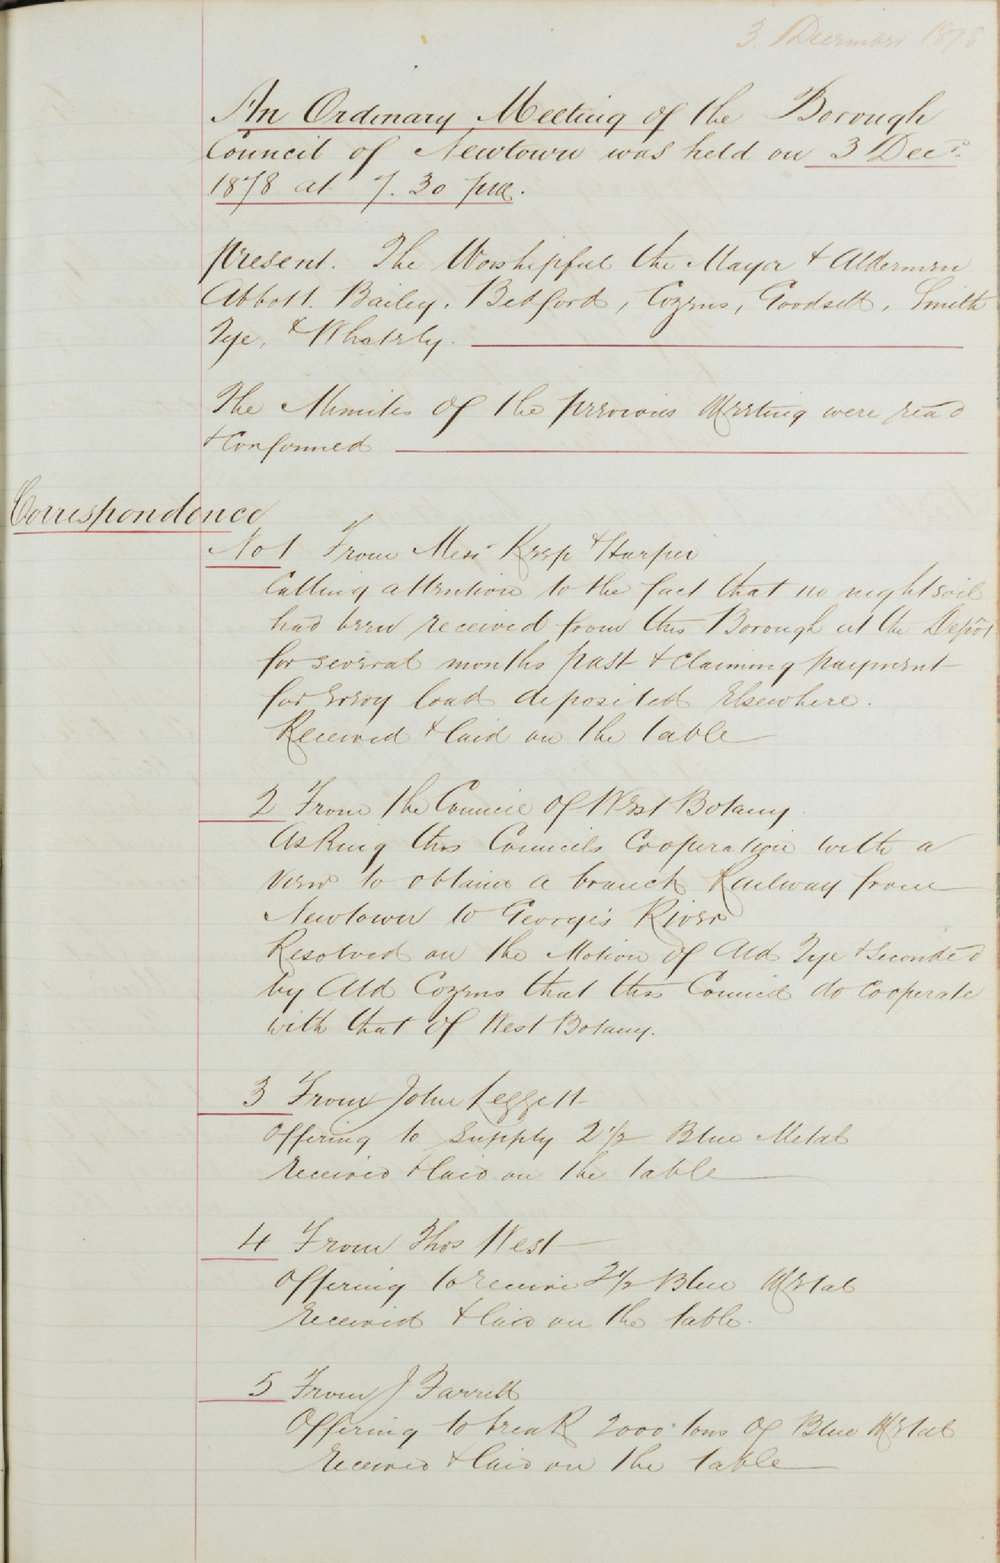 3 December 1878
An Ordinary Meeting of the Borough
Council of Newtown was held on 3 Decr.
1878 at 7.30 pm.
Present. The Worshipful the Mayor & Aldermen
Abbott. Bailey, Bedford, Cozens, Goodsell, Smith
Tye, & Whately.
The Minutes of the previous Meeting were read
& Confirmed
Correspondence
No 1 From Messrs Keep & Harper
Calling attention to the fact that no nightsoil
had been received from this Borough at the Depôt
for several months past & claiming payment
for every load deposited Elsewhere.
Received & laid on the table
2 From the Council of West Botany.
Asking this Councils Cooperation with a
view to obtain a branch Railway from
Newtown to George's River
Resolved on the Motion of Ald Tye & Seconded
by Ald Cozens that this Council do Cooperate
with that of West Botany.
3 From John Leggett
Offering to Supply 2 1/2 Blue Metal
Received & laid on the table
4 From Thos West
Offering to receive 2 1/2 Blue Metal
Received & laid on the table.
5 From J Farrell
Offering to break 2000 tons of Blue Metal
Received & laid on the table